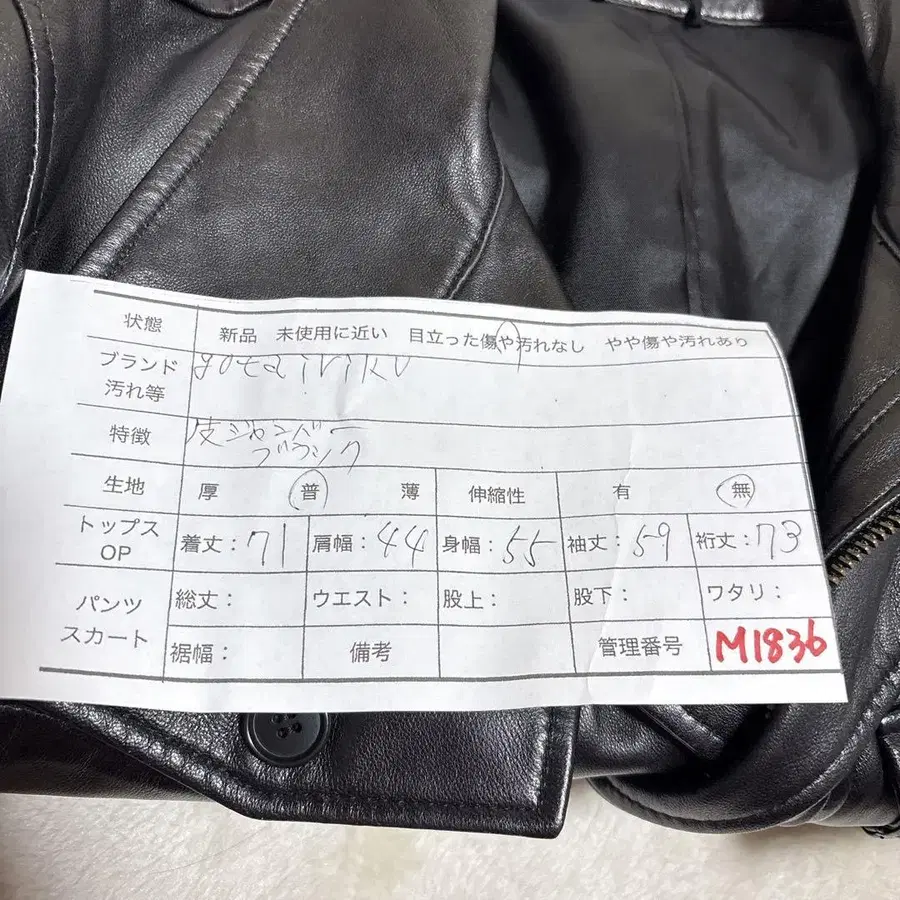 状態 新品 未使用に近い 目立った傷や汚れなし やや傷や汚れあり
ブランド
汚れ等
特徴 皮ジャンバー
生地 厚 普 薄 伸縮性 有 無
トップス
OP 着丈:71 肩幅:44 身幅:55 袖丈:59 裄丈:73
パンツ
スカート 総丈: ウエスト: 股上: 股下: ワタリ:
裾幅: 備考 管理番号 M1836